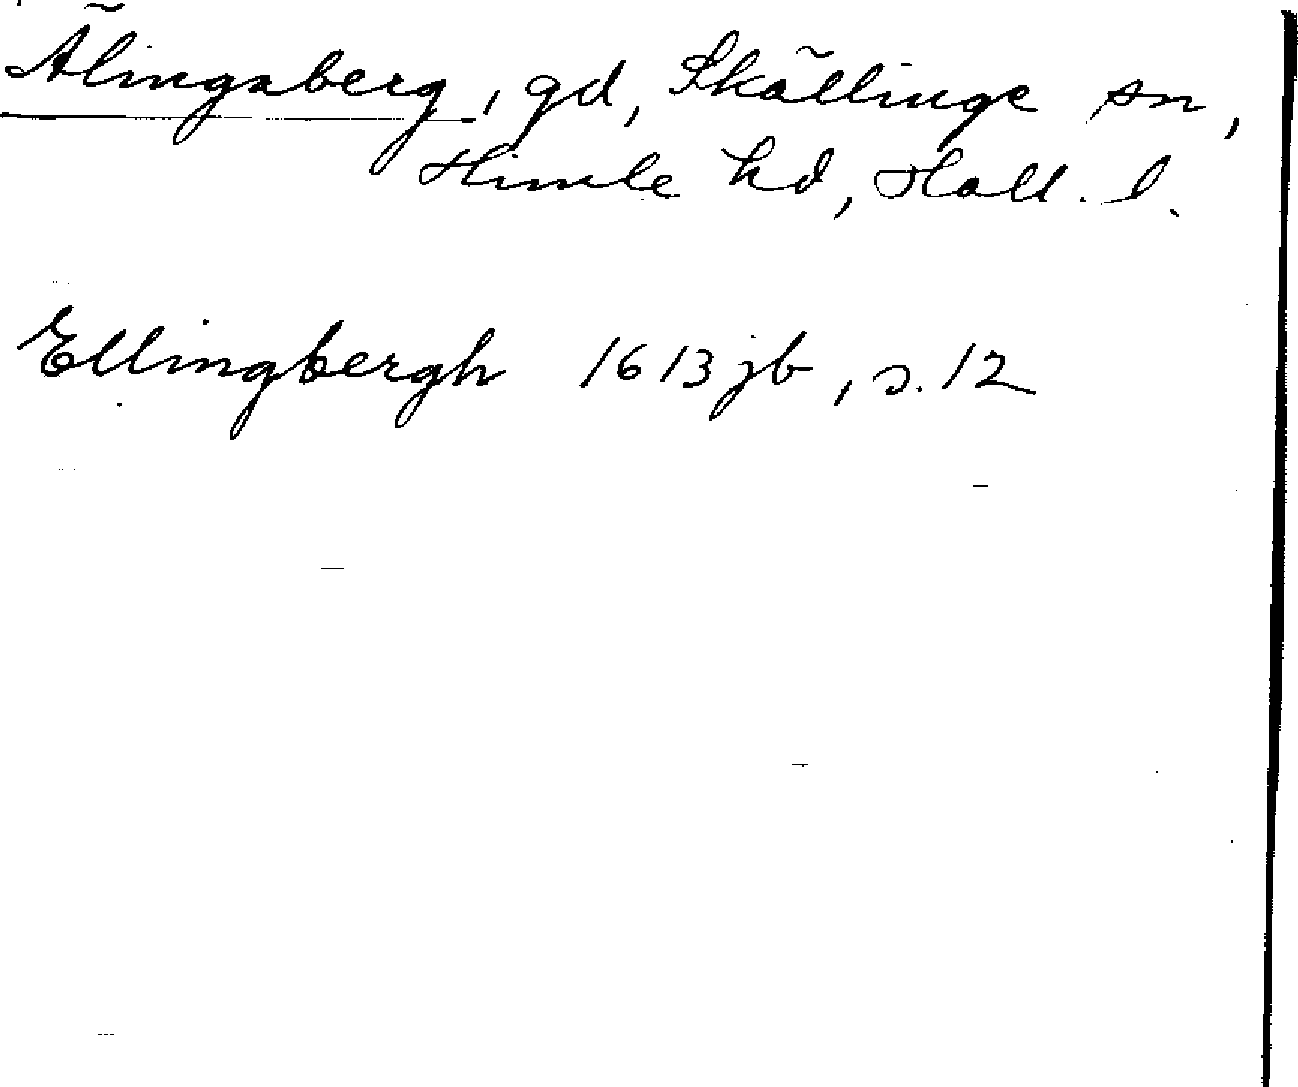 Älingsberg, gd, Skällinge sn,
Himle hd, Hall. l.
Ellingbergh 1613 jb, s. 12